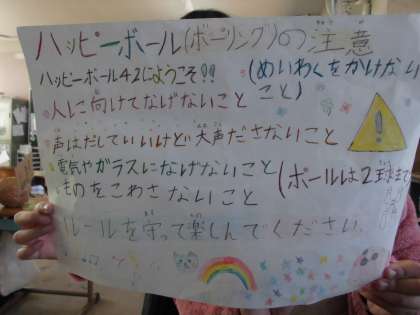 ハッピーボール(ボーリング)の注意
ハッピーボール42にようこそ!!
(めいわくをかけないこと)
人に向けてなげないこと
声はだしていいけど大声ださないこと
電気やガラスになげないこと
(ボールは2球まで
ものをこわさないこと
ルールを守って楽しんでください。